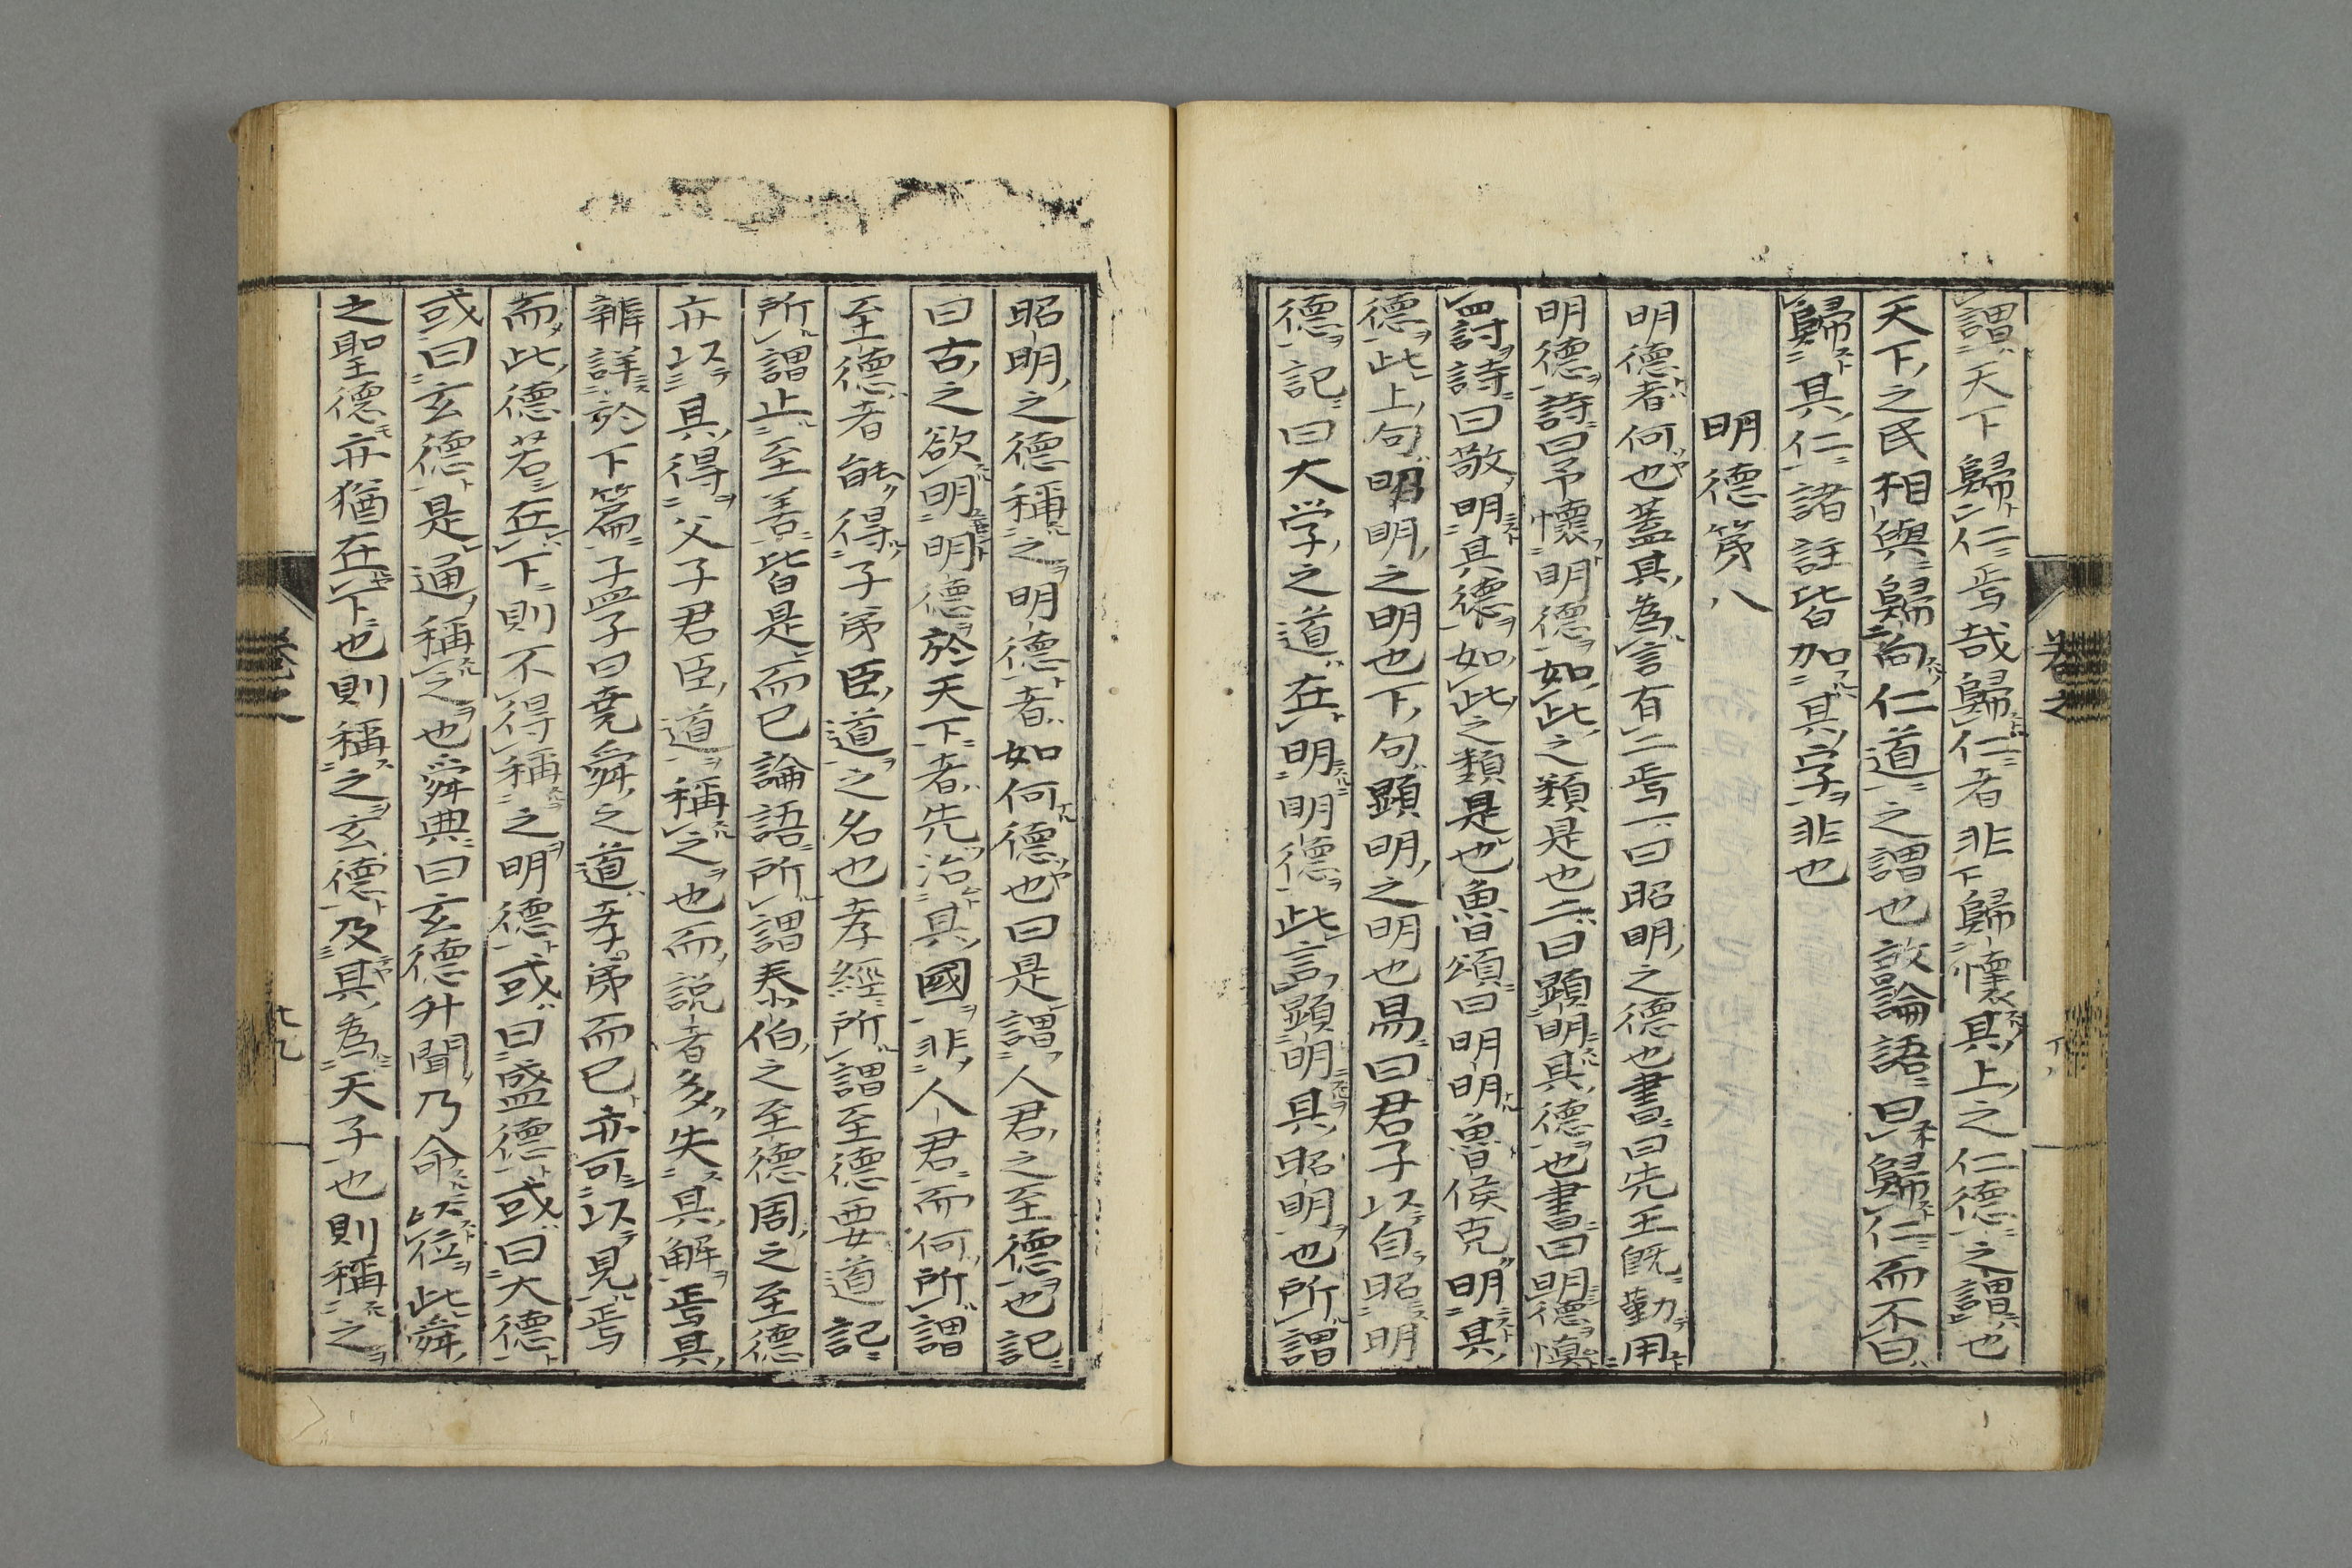 謂天下歸仁焉哉歸仁者非下歸懷其上之仁德之謂也
天下之民相與歸向仁道之謂也故論語曰歸仁而不曰
歸其仁諸註皆加其字非也
明德第八
明德者何也蓋其為言有二焉一曰昭明之德也書曰先王既勤用
明德詩曰予懷明德如此之類是也二曰顯明其德也書曰明德慎
罰詩曰敬明其德如此之類是也魯頌曰明明魯侯克明其
德此上句昭明之明也下句顯明之明也易曰君子以自昭明
德記曰大学之道在明明德此言顯明其昭明也所謂
昭明之德稱之明德者如何德也曰是謂人君之至德也記
曰古之欲明明德於天下者先治其國非人君而何所謂
至德者能得子弟臣道之名也孝經所謂至德要道記
所謂止至善皆是而已論語所謂泰伯之至德周之至德
亦以其得父子君臣道稱之也而說者多失其解焉具
辨詳於下篇孟子曰堯舜之道孝弟而已亦可以見焉
而此德若在下則不得稱之明德或曰盛德或曰大德
或曰玄德是通稱之也舜典曰玄德升聞乃命以位此舜
之聖德亦猶在下也則稱之玄德及其為天子也則稱之